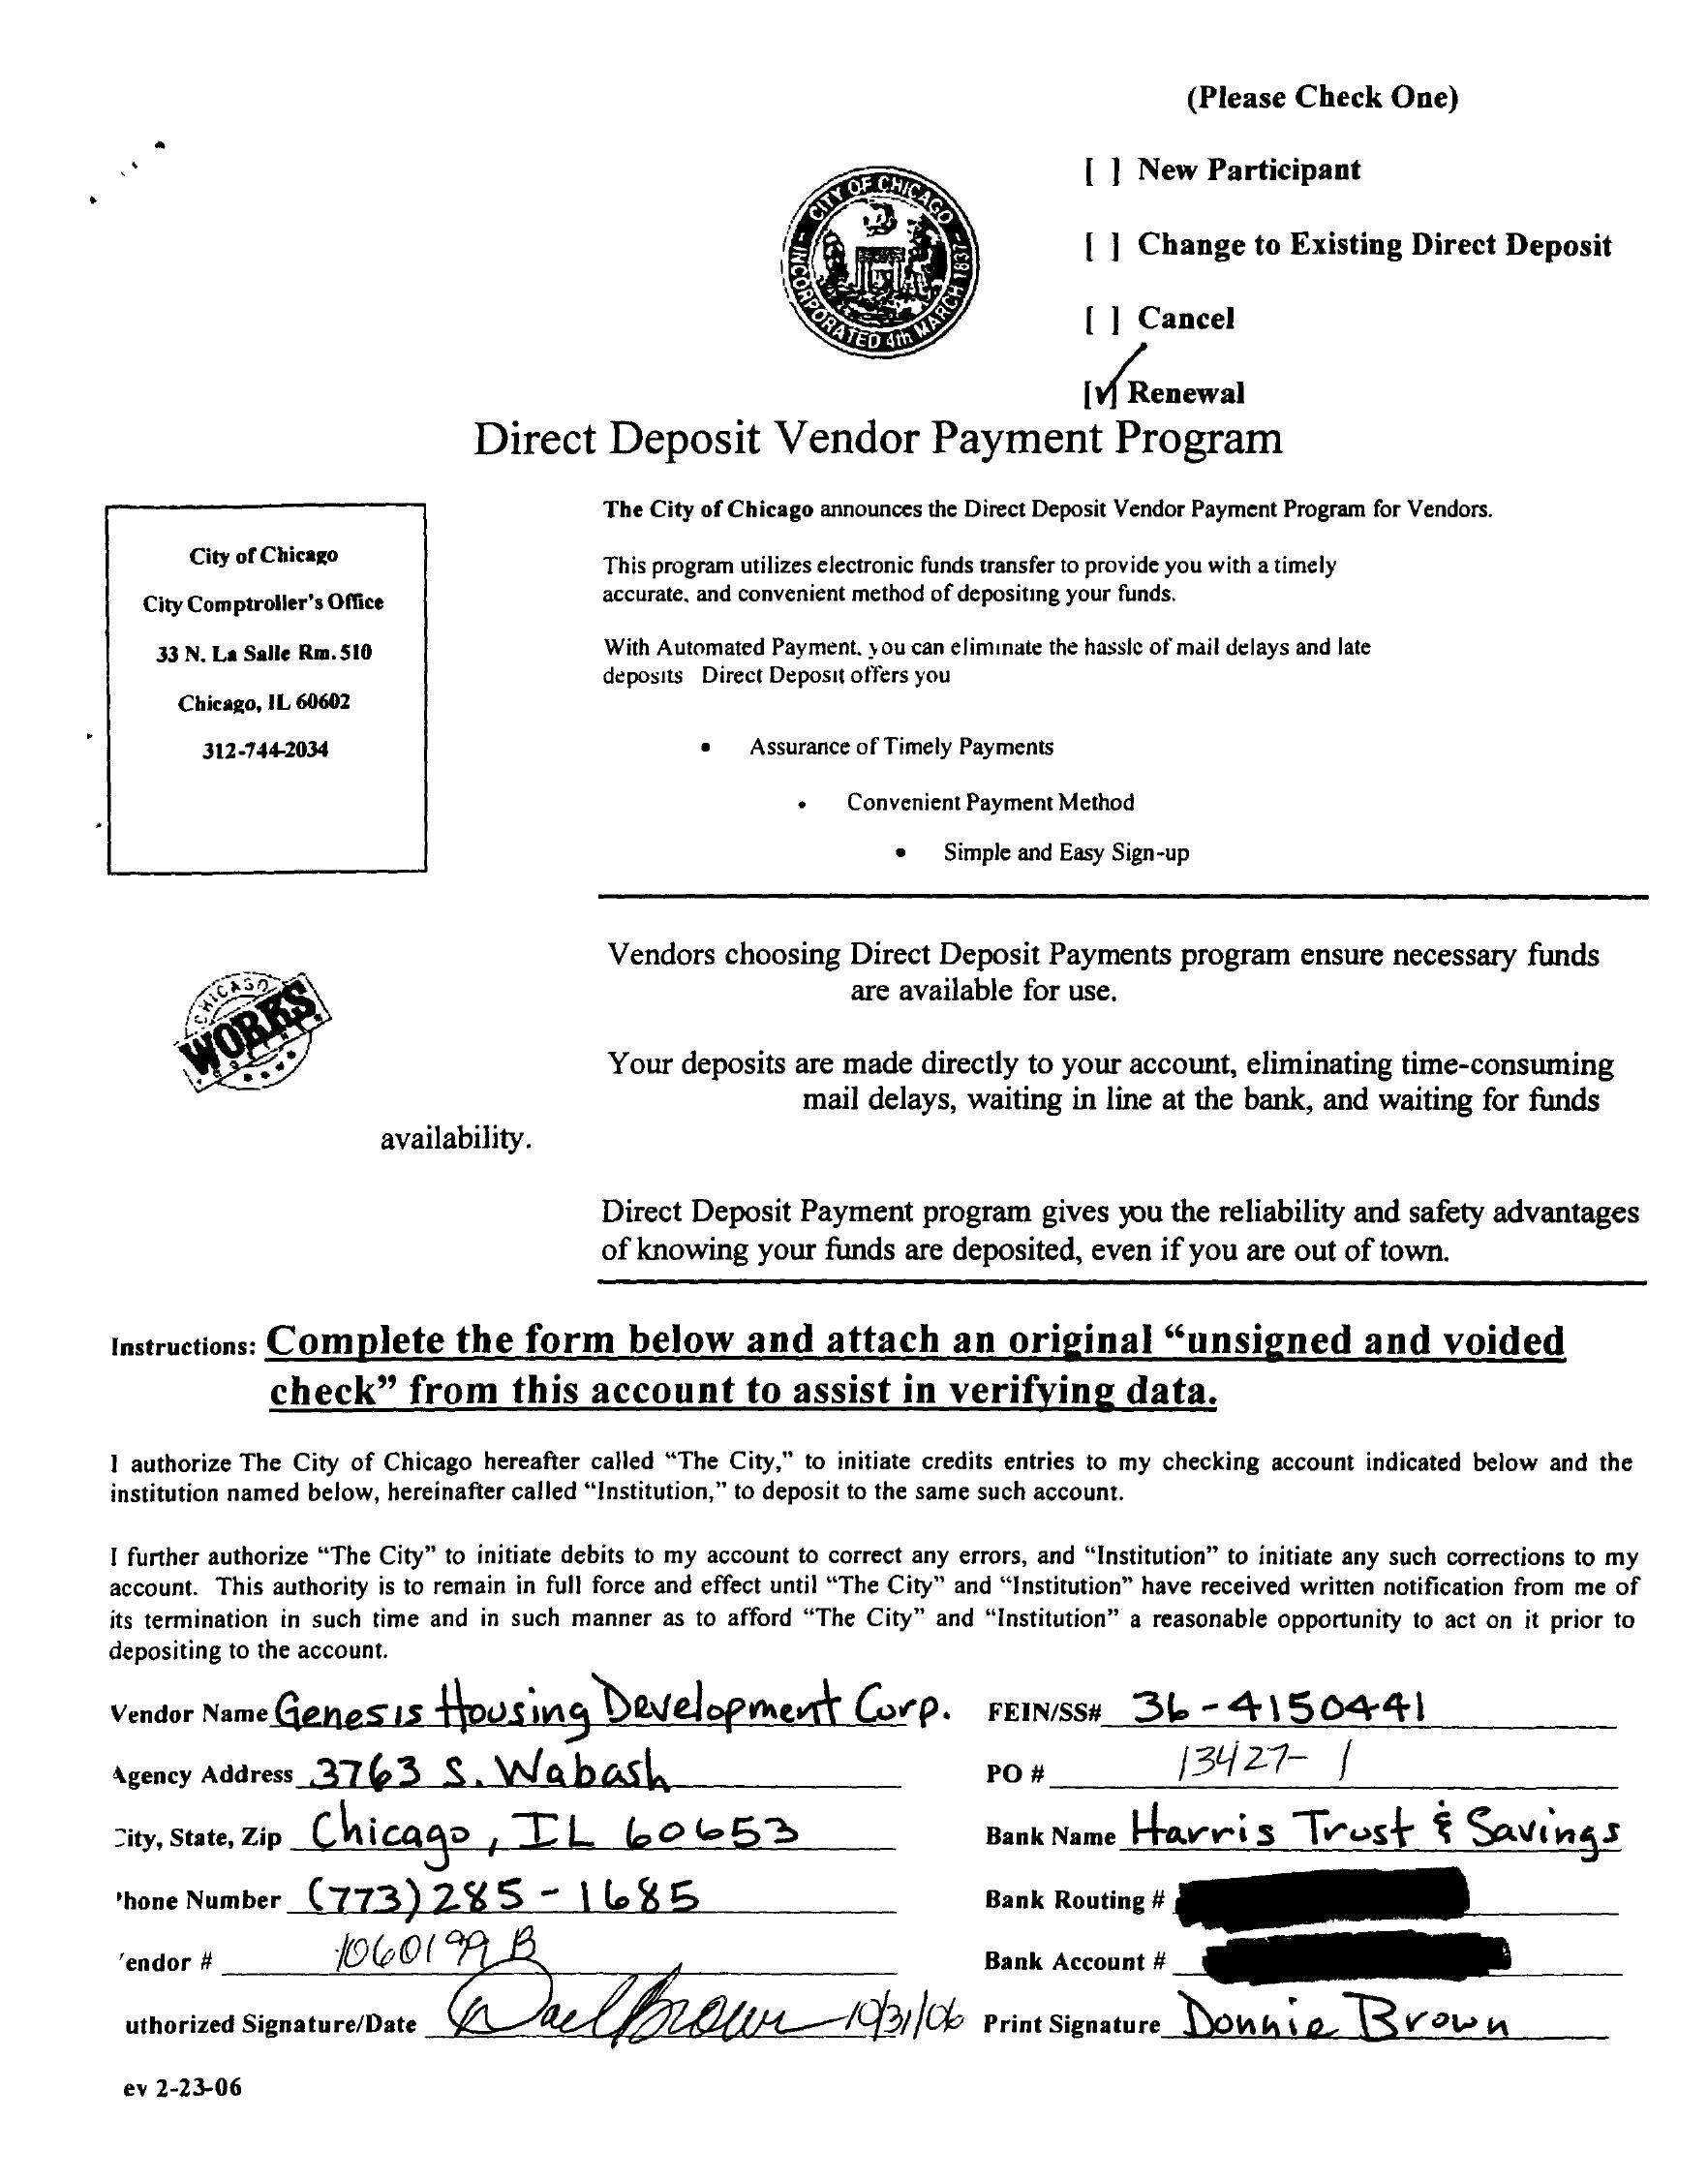 (Please Check One)
[ ] New Participant
[ ] Change to Existing Direct Deposit
[ ] Cancel
[✓] Renewal
CITY OF CHICAGO
INCORPORATED 4th MARCH 1837
Direct Deposit Vendor Payment Program
City of Chicago
City Comptroller's Office
33 N. La Salle Rm. 510
Chicago, IL 60602
312-744-2034
The City of Chicago announces the Direct Deposit Vendor Payment Program for Vendors.
This program utilizes electronic funds transfer to provide you with a timely
accurate, and convenient method of depositing your funds.
With Automated Payment, you can eliminate the hassle of mail delays and late
deposits Direct Deposit offers you
• Assurance of Timely Payments
• Convenient Payment Method
• Simple and Easy Sign-up
CHICAGO
WORKS
Vendors choosing Direct Deposit Payments program ensure necessary funds
are available for use.
Your deposits are made directly to your account, eliminating time-consuming
mail delays, waiting in line at the bank, and waiting for funds
availability.
Direct Deposit Payment program gives you the reliability and safety advantages
of knowing your funds are deposited, even if you are out of town.
Instructions: Complete the form below and attach an original “unsigned and voided
check” from this account to assist in verifying data.
I authorize The City of Chicago hereafter called “The City,” to initiate credits entries to my checking account indicated below and the
institution named below, hereinafter called “Institution,” to deposit to the same such account.
I further authorize “The City” to initiate debits to my account to correct any errors, and “Institution” to initiate any such corrections to my
account. This authority is to remain in full force and effect until “The City” and “Institution” have received written notification from me of
its termination in such time and in such manner as to afford “The City” and “Institution” a reasonable opportunity to act on it prior to
depositing to the account.
Vendor Name Genesis Housing Development Corp. FEIN/SS# 36-4150441
Agency Address 3763 S. Wabash PO # 13427-1
City, State, Zip Chicago, IL 60653 Bank Name Harris Trust & Savings
Phone Number (773) 285-1685 Bank Routing #
endor # 1060199 B Bank Account #
uthorized Signature/Date 10/31/06 Print Signature Donnie Brown
ev 2-23-06